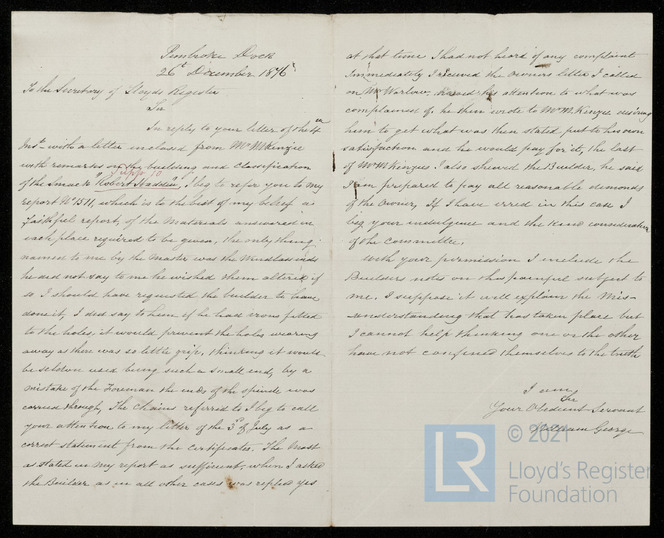 Pembroke Dock
26th December 1876
To the Secretary of Lloyds Register
Sir
In reply to your letter of the
Inst with a letter inclosed from Mr McKenzie
with remarks on the building and Classification
of the Smack "Robert Haddin", I beg to refer you to my
report No 1511, which is to the best of my belief a
faithful report, of the Materials answered in
each place required to be given, the only thing
named to me by the Master was the Windlass ends
he did not say to me he wished them altered if
so I should have requested the builder to have
done it, I did say to them if he have irons fitted
to the holes, it would prevent the holes wearing
away as there was so little grip, thinking it would
be seldom used being such a small end, by a
mistake of the Foreman the ends of the spindle was
carried through, The Chains referred to I beg to call
your attention to my letter of the 3d of July as a
correct statement from the Certificates. The Mast
as stated in my report as sufficient, when I asked
the Builder as in all other cases was replied yes
at that time I had not heard of any complaint
Immediately I received the Owners letter I called
on Mr Warlow, drew his attention to what was
complained of, he then wrote to Mr McKenzie
him to get what was then stated put to his own
satisfaction and he would pay for it, the last
of Mr McKenzies I also shewed the Builder, he said
I am prepared to pay all reasonable demands
of the Owner, If I have erred in this case I
beg your indulgence and the kind consideration
of the committee.
With your permission I include the
Builders notes on this painful subject to
me, I suppose it will explain the Mis-
-understanding that has taken place but
I cannot help thinking one or the other
have not confined themselves to the truth
I am
Sir
Your Obedient Servant
William George
© 2021
LR
Lloyd's Register
Foundation